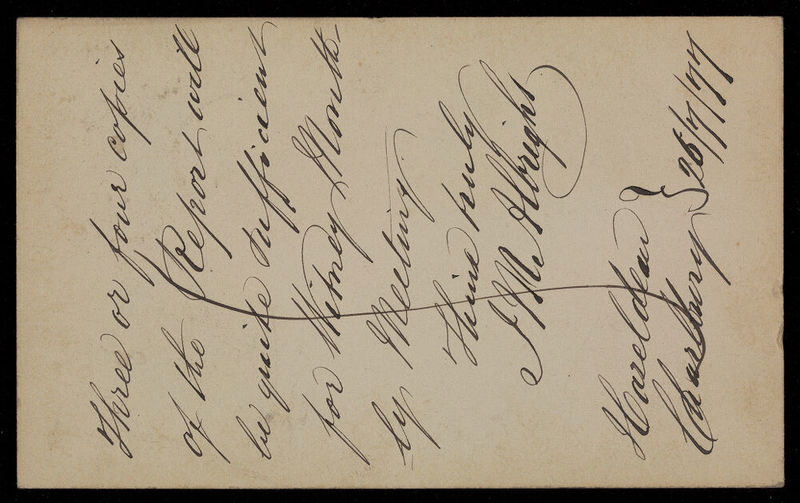 Three or four copies
of the Report will
be quite sufficient
for Witney Month-
ly Meeting.
Thine truly
J M Albright
Hazeldean
Charlbury } 26/7/77